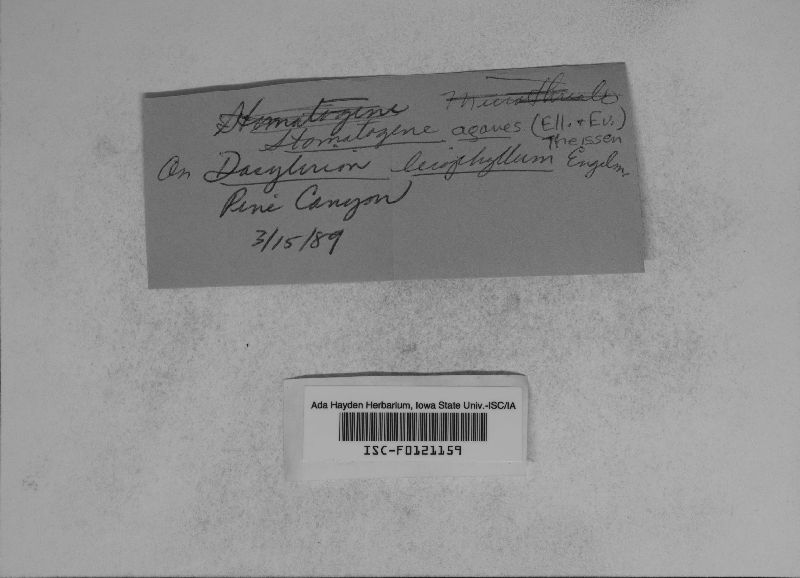 Stomatogene
Stomatogene agaves (Ell. + Ev.)
Theissen
On Dasylirion leiophyllum Engelm.
Pine Canyon
3/15/89
Ada Hayden Herbarium, Iowa State Univ.-ISC/IA
ISC-F0121159